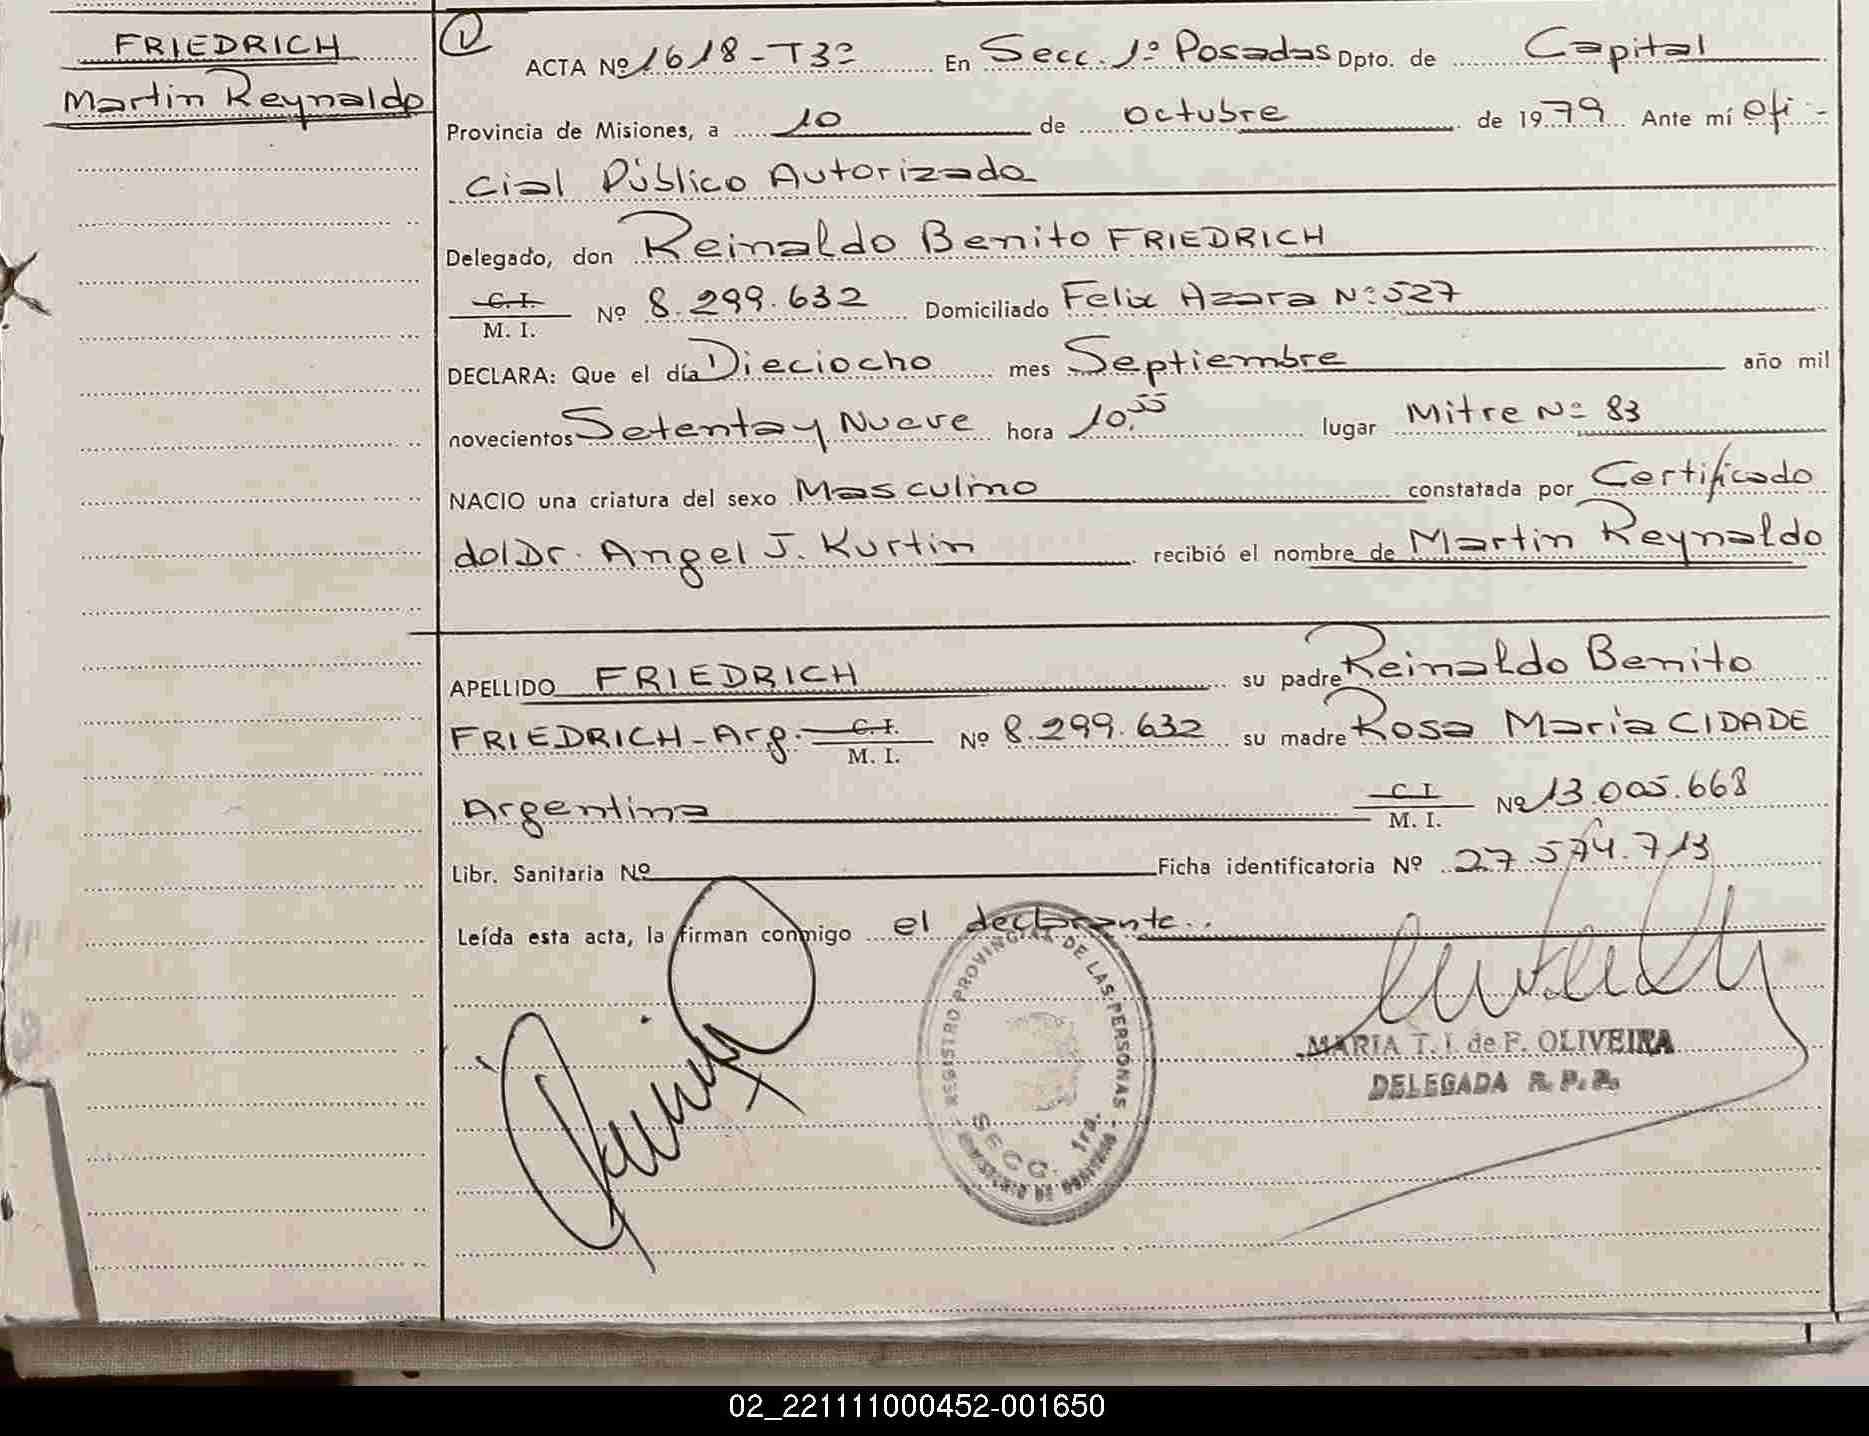 FRIEDRICH
Martin Reynaldo
ACTA Nº 1618-T3º En Secc. 1º Posadas Dpto. de Capital
Provincia de Misiones, a 10 de octubre de 1979 Ante mí Ofi-
cial Público Autorizado
Delegado, don Reinaldo Benito FRIEDRICH
C. I.
M. I. Nº 8.299.632 Domiciliado Felix Azara Nº 527
DECLARA: Que el día Dieciocho mes Septiembre año mil
novecientos Setenta y Nueve hora 10.55 lugar Mitre Nº 83
NACIO una criatura del sexo Masculino constatada por Certificado
del Dr. Angel J. Kurtin recibió el nombre de Martin Reynaldo
APELLIDO FRIEDRICH su padre Reinaldo Benito
FRIEDRICH-Arg. C. I. M. I. Nº 8.299.632 su madre Rosa Maria CIDADE
Argentina C. I. M. I. Nº 13.005.668
Libr. Sanitaria Nº Ficha identificatoria Nº 27.574.713
Leída esta acta, la firman conmigo el declarante..
REGISTRO PROVINCIAL DE LAS PERSONAS
SECC. 1ra.
MARIA T. I. de F. OLIVEIRA
DELEGADA R. P. P.
02_221111000452-001650